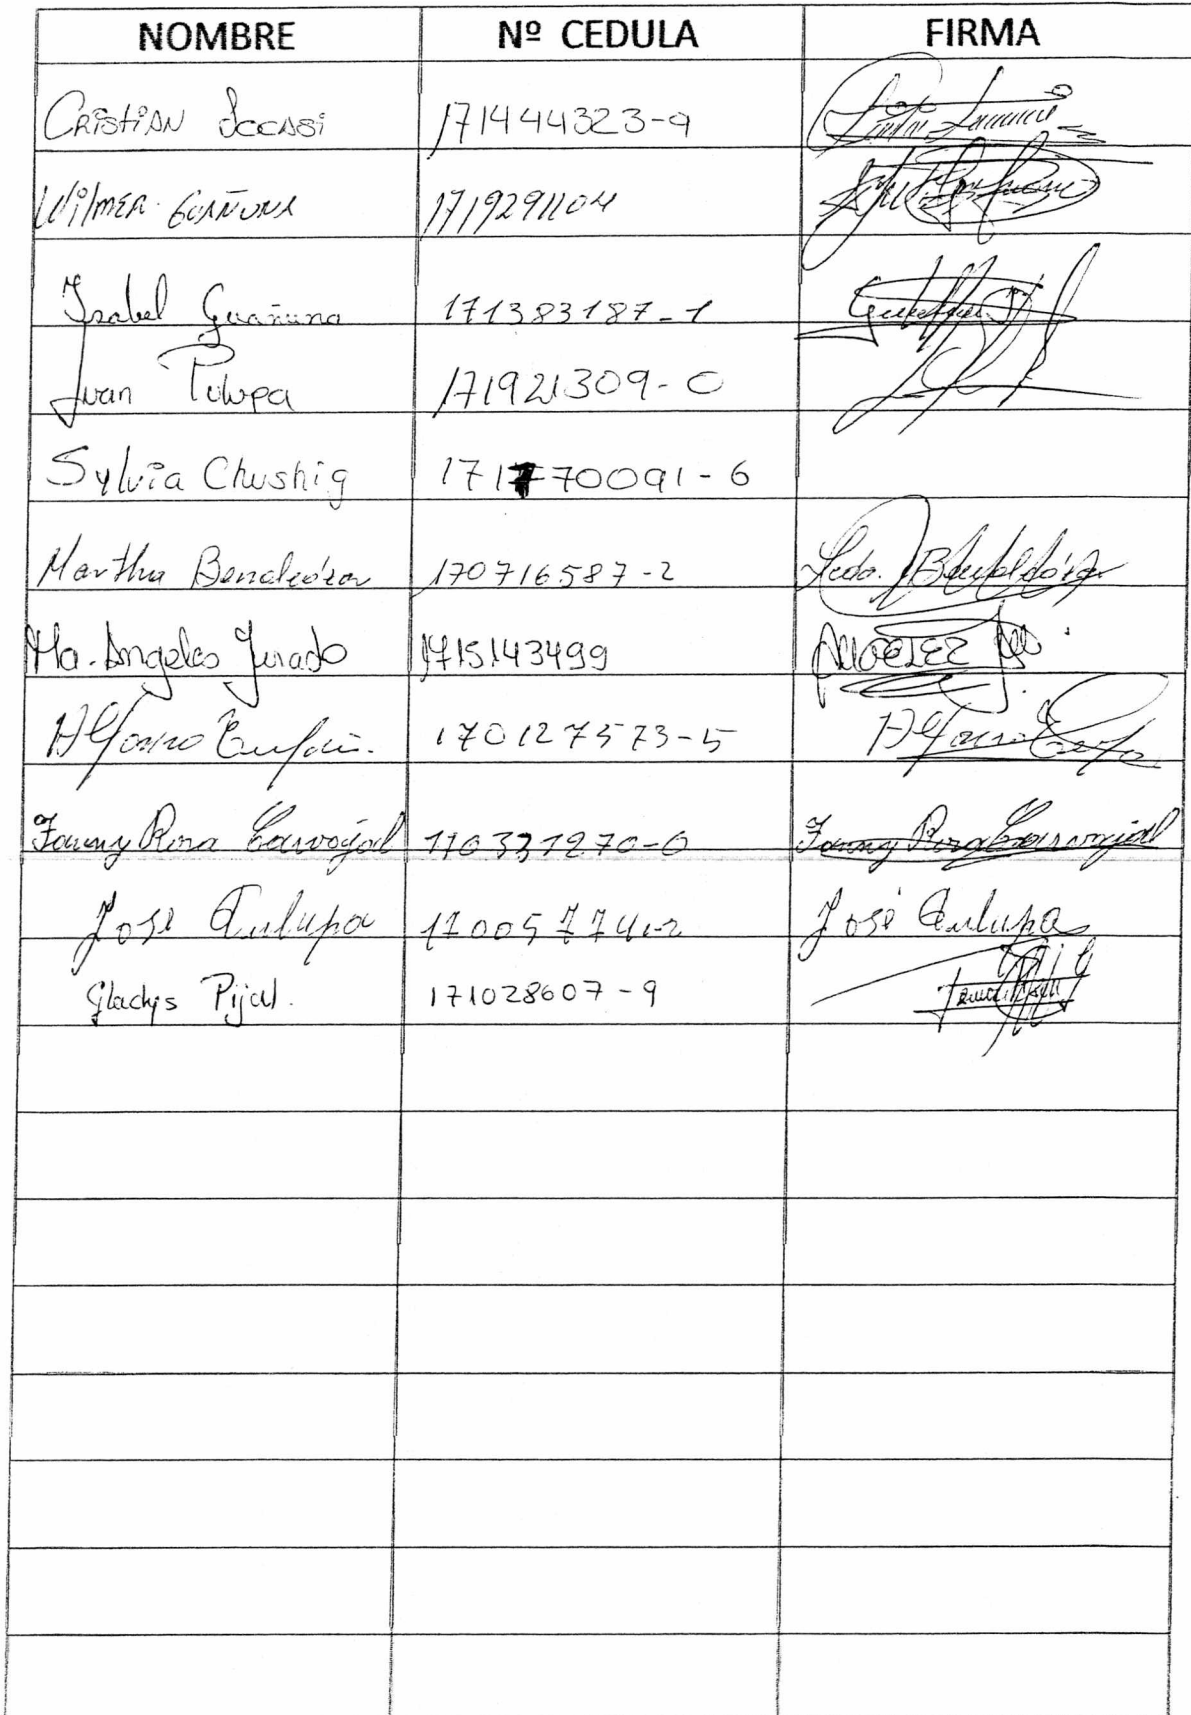 NOMBRE Nº CEDULA FIRMA
CRISTIAN 171444323-9
WILMER GUAÑUNA 1719291104
Isabel Guañuna 171383187-1
Juan Pulupa 171921309-0
Sylvia Chushig 171770091-6
Martha Benalcázar 170716587-2 Lcda.
Ma. Angeles Jurado 1715143499
Alfonso 170127573-5 Alfonso
Fanny Rosa Carvajal 170331270-0 Fanny Rosa Carvajal
José Pulupa José Pulupa
Gladys Pijal. 171028607-9